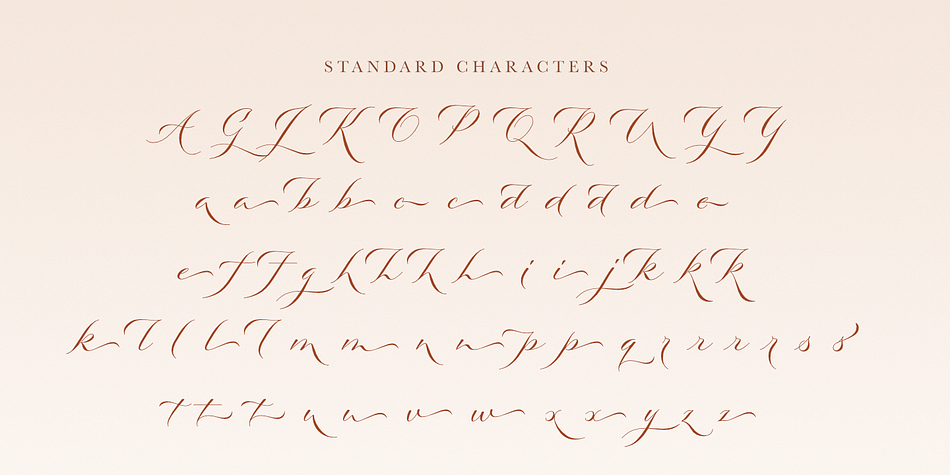 STANDARD CHARACTERS
A G L K O P Q R U Y Y
a a b b c c d d d d e
e f f g h h h h i i j k k k
k l l l l m m n n p p q r r r r s s
t t t u u v w x x y z z